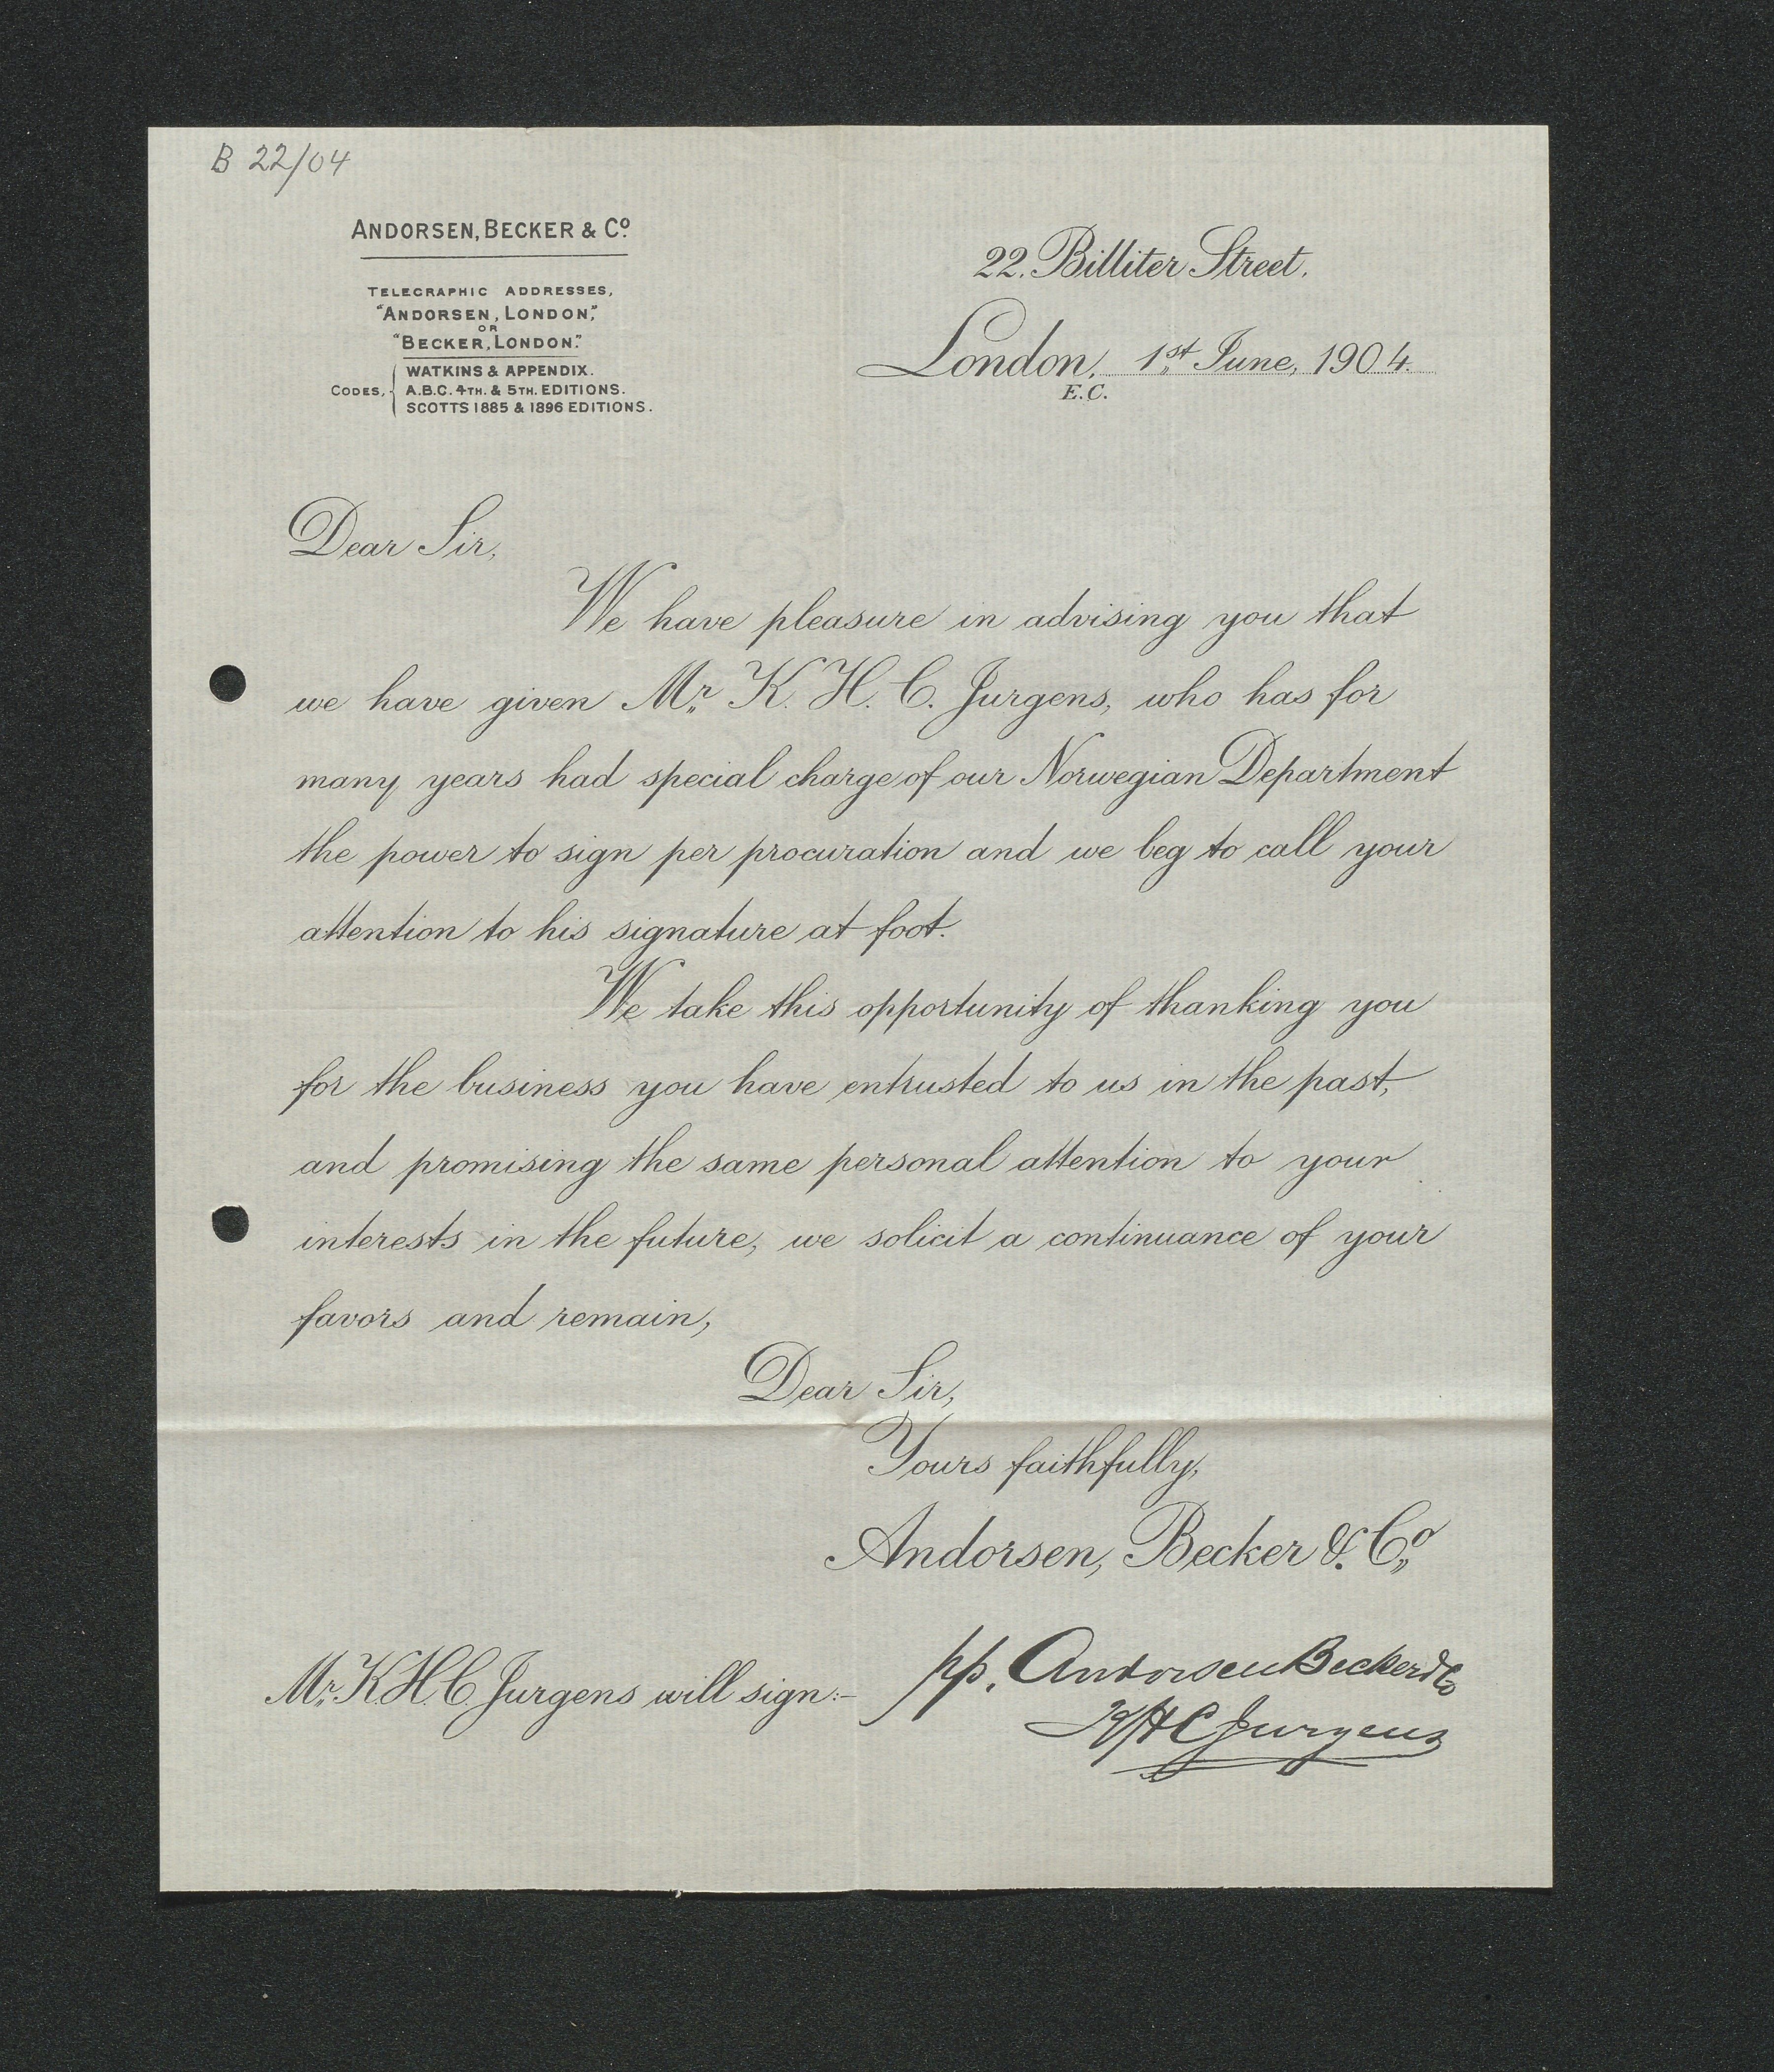 B 22/04
ANDORSEN, BECKER & Cº.
TELEGRAPHIC ADDRESSES,
"ANDORSEN, LONDON,"
OR
"BECKER, LONDON."
CODES, WATKINS & APPENDIX.
A.B.C. 4TH. & 5TH. EDITIONS.
SCOTTS 1885 & 1896 EDITIONS.
22. Billiter Street,
London, 1st June, 1904.
E.C.
Dear Sir,
We have pleasure in advising you that
we have given Mr. K. H. C. Jurgens, who has for
many years had special charge of our Norwegian Department
the power to sign per procuration and we beg to call your
attention to his signature at foot.
We take this opportunity of thanking you
for the business you have entrusted to us in the past,
and promising the same personal attention to your
interests in the future, we solicit a continuance of your
favors and remain,
Dear Sir,
Yours faithfully,
Andorsen, Becker & Co.
Mr. K.H.C. Jurgens will sign:- pp. Andorsen Becker & Co
KHC Jurgens